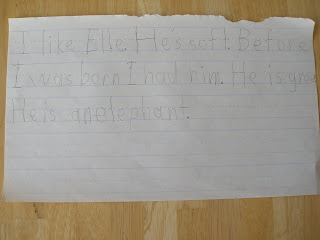 I like Elle. He's soft. Before
I was born I had him. He is
He is an elephant.